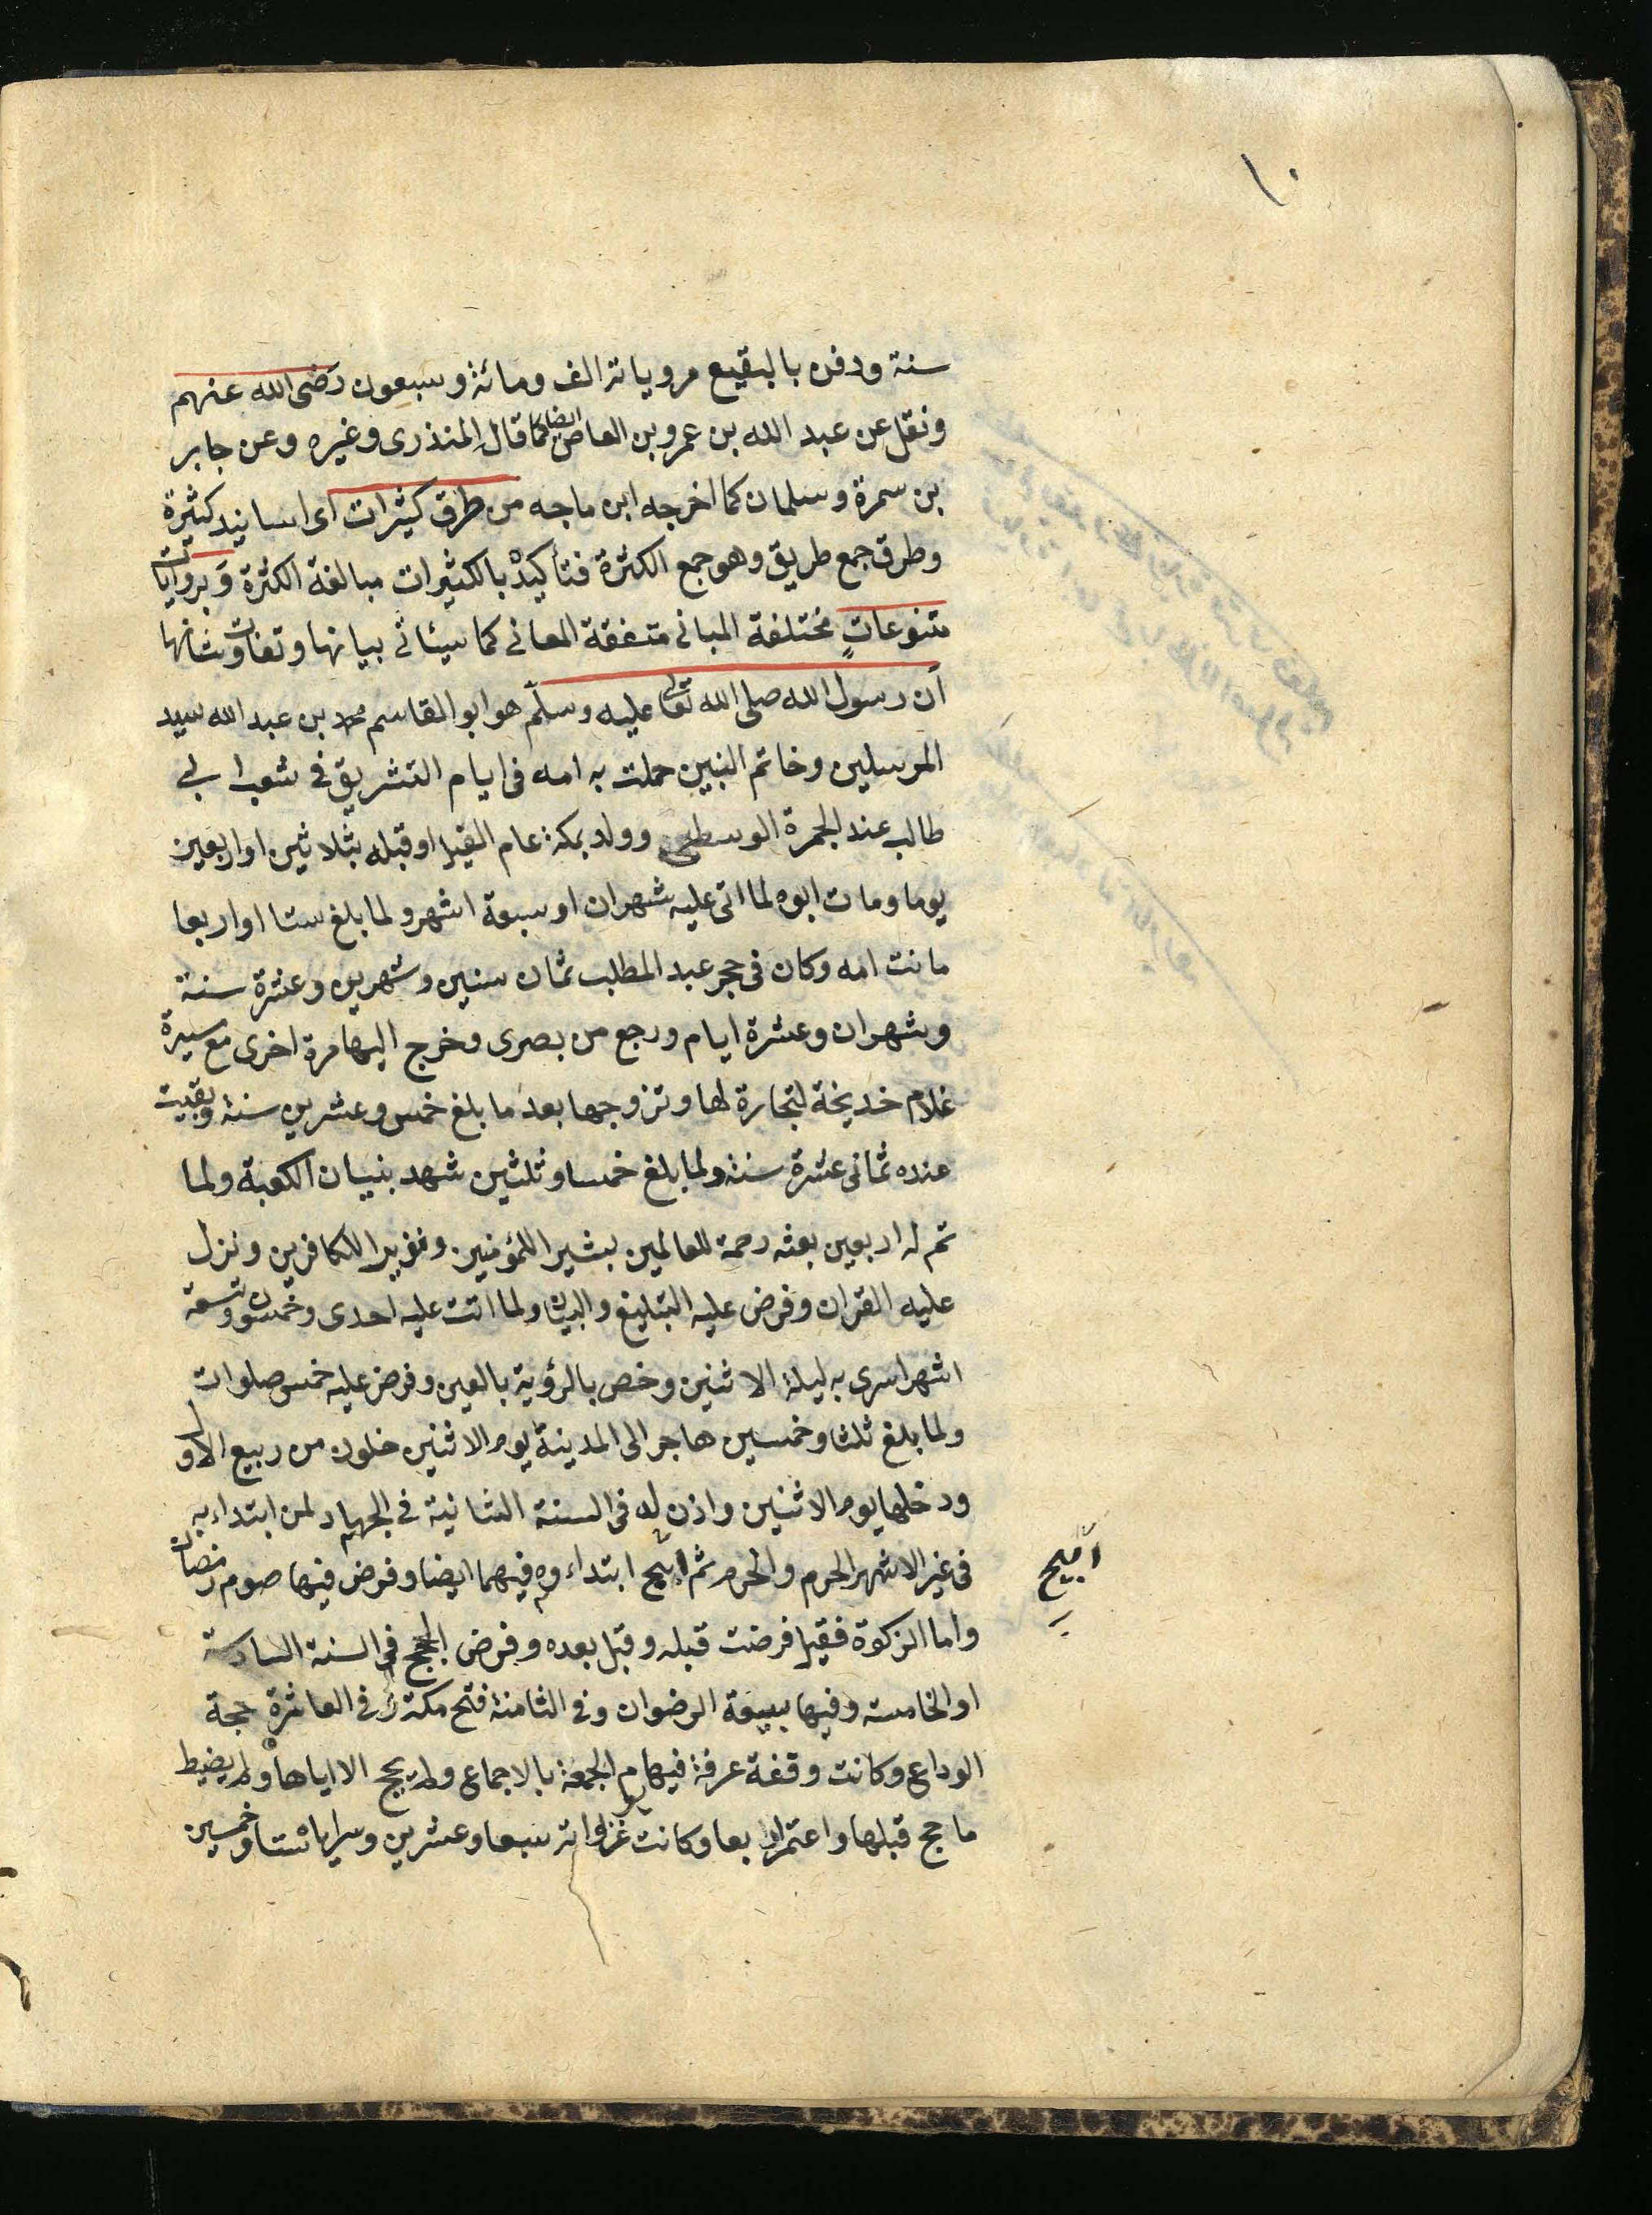 ١٠
سنة ودفن بالبقيع مروياته الف ومائة وسبعون رضى الله عنهم
ونقل عن عبد الله بن عمرو بن العاص ايضا كما قال المنذرى وغيره وعن جابر
بن سمرة وسلمان كما اخرجه ابن ماجه من طرق كثيرات اى اسانيد كثيرة
وطرق جمع طريق وهو جمع الكثرة فتأكيد بالكثيرات مبالغة الكثرة وبروايات
متنوعات مختلفة المبانى متفقة المعانى كما سيئاتى بيانها وتفاوت شانها
أن رسول الله صلى الله تعالى عليه وسلم هو ابو القاسم محمد بن عبد الله سيد
المرسلين وخاتم النبين حملت به امه فى ايام التشريق فى شعب ابى
طالب عند الجمرة الوسطى وولد بمكة عام الفيل او قبله بثلاثين او اربعين
يوما ومات ابوه لما اتى عليه شهران او سبعة اشهر ولما بلغ ستا او اربعا
ماتت امه وكان فى حجر عبد المطلب ثمان سنين وشهرين وعشرة سنة
وشهران وعشرة ايام ورجع من بصرى وخرج اليها مرة اخرى مع ميسرة
غلام خديجة لتجارة لها وتزوجها بعد ما بلغ خمس وعشرين سنة وبقيت
عنده ثمانى عشرة سنة ولما بلغ خمسا وثلثين شهد بنيان الكعبة ولما
تم له اربعين بعثه رحمة للعالمين بشيرا للمؤمنين ونذيرا للكافرين ونزل
عليه القران وفرض عليه التبليغ والبيان ولما اتت عليه احدى وخمسون وتسعة
اشهر اسرى به ليلة الاثنين وخص بالرؤية بالعين وفرض عليه خمس صلوات
ولما بلغ ثلثا وخمسين هاجر الى المدينة يوم الاثنين خلون من ربيع الاول
ودخلها يوم الاثنين واذن له فى السنة الثانية فى الجهاد لمن ابتداء به
فى غير الاشهر الحرم والحرم ثم ابيح ابتداءوه فيهما ايضا وفرض فيها صوم رمضان
ابيح
واما الزكوة فقيل فرضت قبله وقبل بعده وفرض الحج فى السنة السادسة
او الخامسة وفيها بيعة الرضوان وفى الثامنة فتح مكة وفى العاشرة حجة
الوداع وكانت وقفة عرفة فيها يوم الجمعة بالاجماع ولم يحج الا اياها ولم يضبط
ما حج قبلها واعتمر اربعا وكانت غزواته سبعا وعشرين وسراياه ستا وخمسين